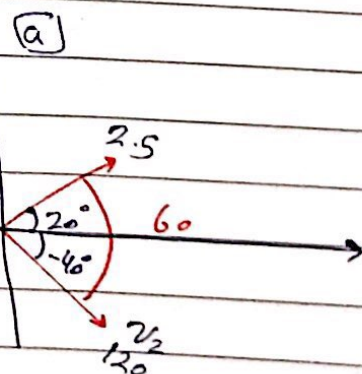 a
2.5
20°
60
-40°
v₂
120